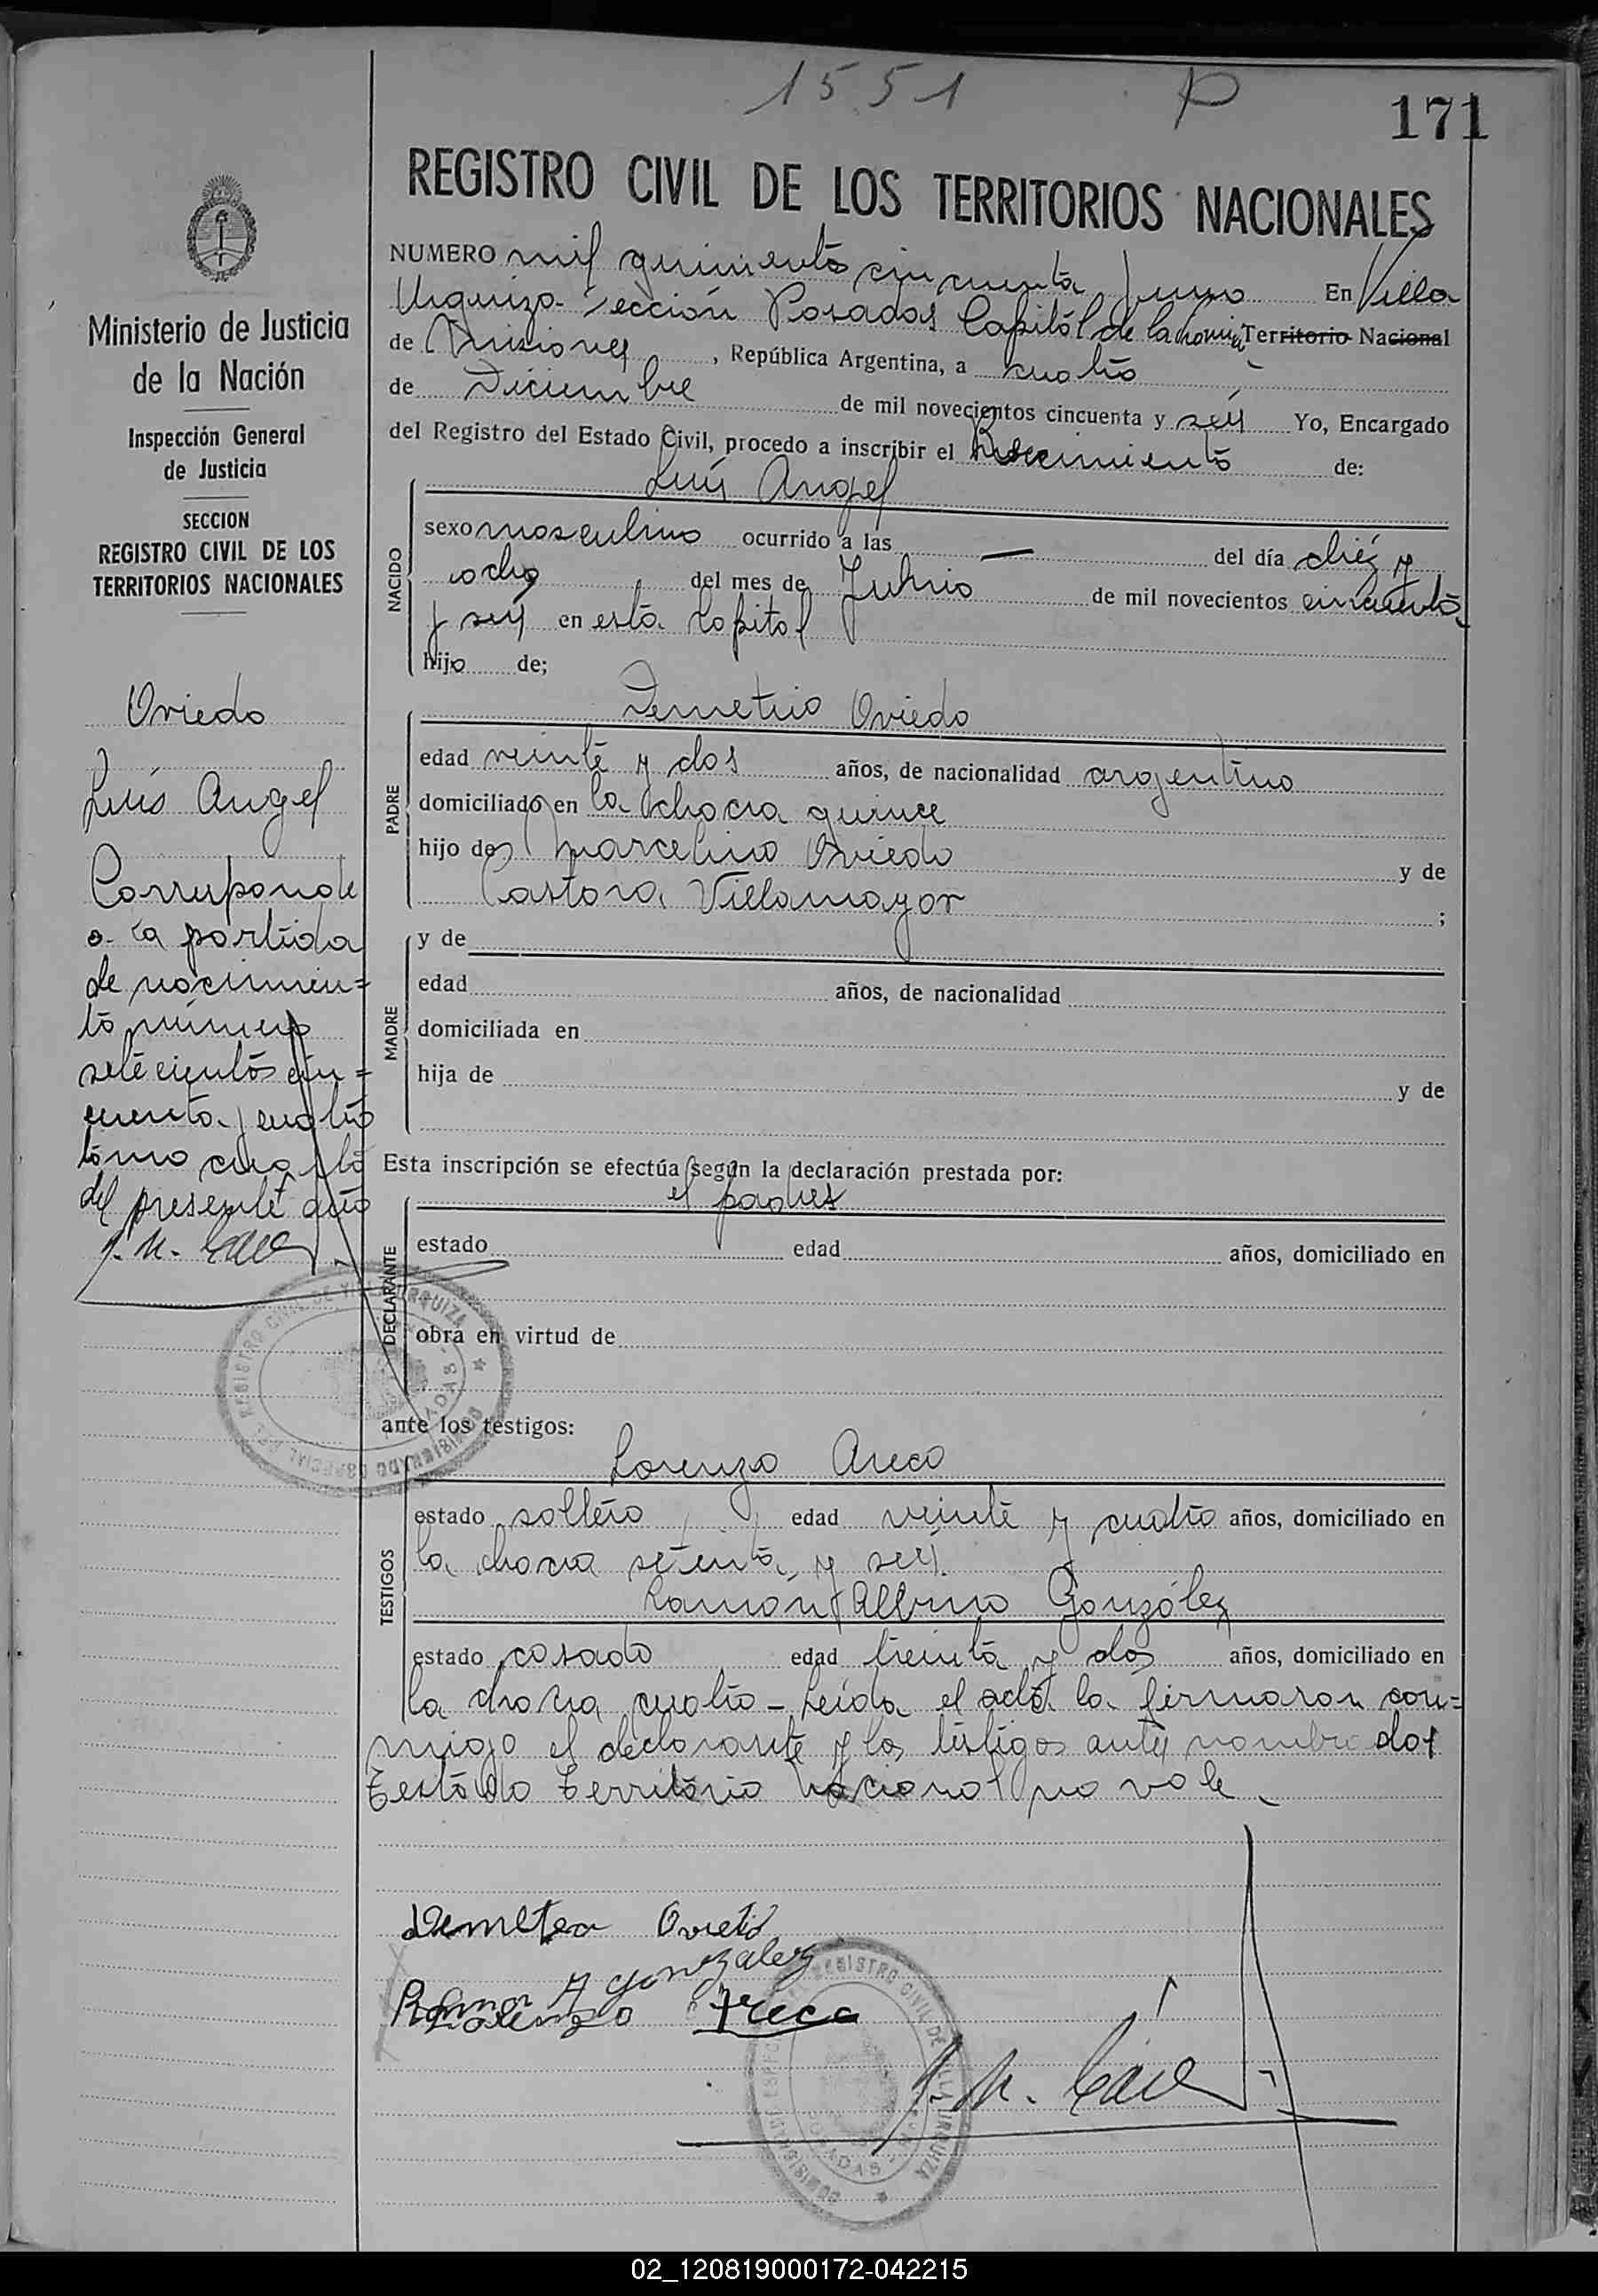 1551 P
171
REGISTRO CIVIL DE LOS TERRITORIOS NACIONALES
NUMERO mil quinientos cincuenta y uno En Villa
Urquiza Sección Posadas Capital de la Territorio Nacional
de Misiones, República Argentina, a cuatro
de Diciembre de mil novecientos cincuenta y seis Yo, Encargado
del Registro del Estado Civil, procedo a inscribir el Nacimiento de:
NACIDO
Luis Angel
sexo masculino ocurrido a las — del día diez y
ocho del mes de Junio de mil novecientos cincuenta
y seis en esta Capital
hijo de;
PADRE
Demetrio Oviedo
edad veinte y dos años, de nacionalidad argentino
domiciliado en la chacra quince
hijo de Marcelino Oviedo y de
Castora Villamayor ;
MADRE
y de
edad años, de nacionalidad
domiciliada en
hija de y de
Esta inscripción se efectúa según la declaración prestada por:
DECLARANTE
el padre
estado edad años, domiciliado en
obra en virtud de
ante los testigos:
TESTIGOS
Lorenzo Areco
estado soltero edad veinte y cuatro años, domiciliado en
la chacra setenta y seis.
Ramón Albino González
estado casado edad treinta y dos años, domiciliado en
la chacra cuatro - Leída el acta la firmaron con=
migo el declarante y los testigos antes nombrados
Testado Territorio Nacional no vale
Oviedo
Ramon A Gonzalez
Lorenzo Areco
Ministerio de Justicia
de la Nación
Inspección General
de Justicia
SECCION
REGISTRO CIVIL DE LOS
TERRITORIOS NACIONALES
Oviedo
Luis Angel
Corresponde
a la partida
de nacimien=
to número
setecientos cin=
cuenta y cuatro
tomo cuarto
del presente año
REGISTRO CIVIL DE VILLA URQUIZA
POSADAS
REGISTRO CIVIL DE VILLA URQUIZA
POSADAS
02_120819000172-042215